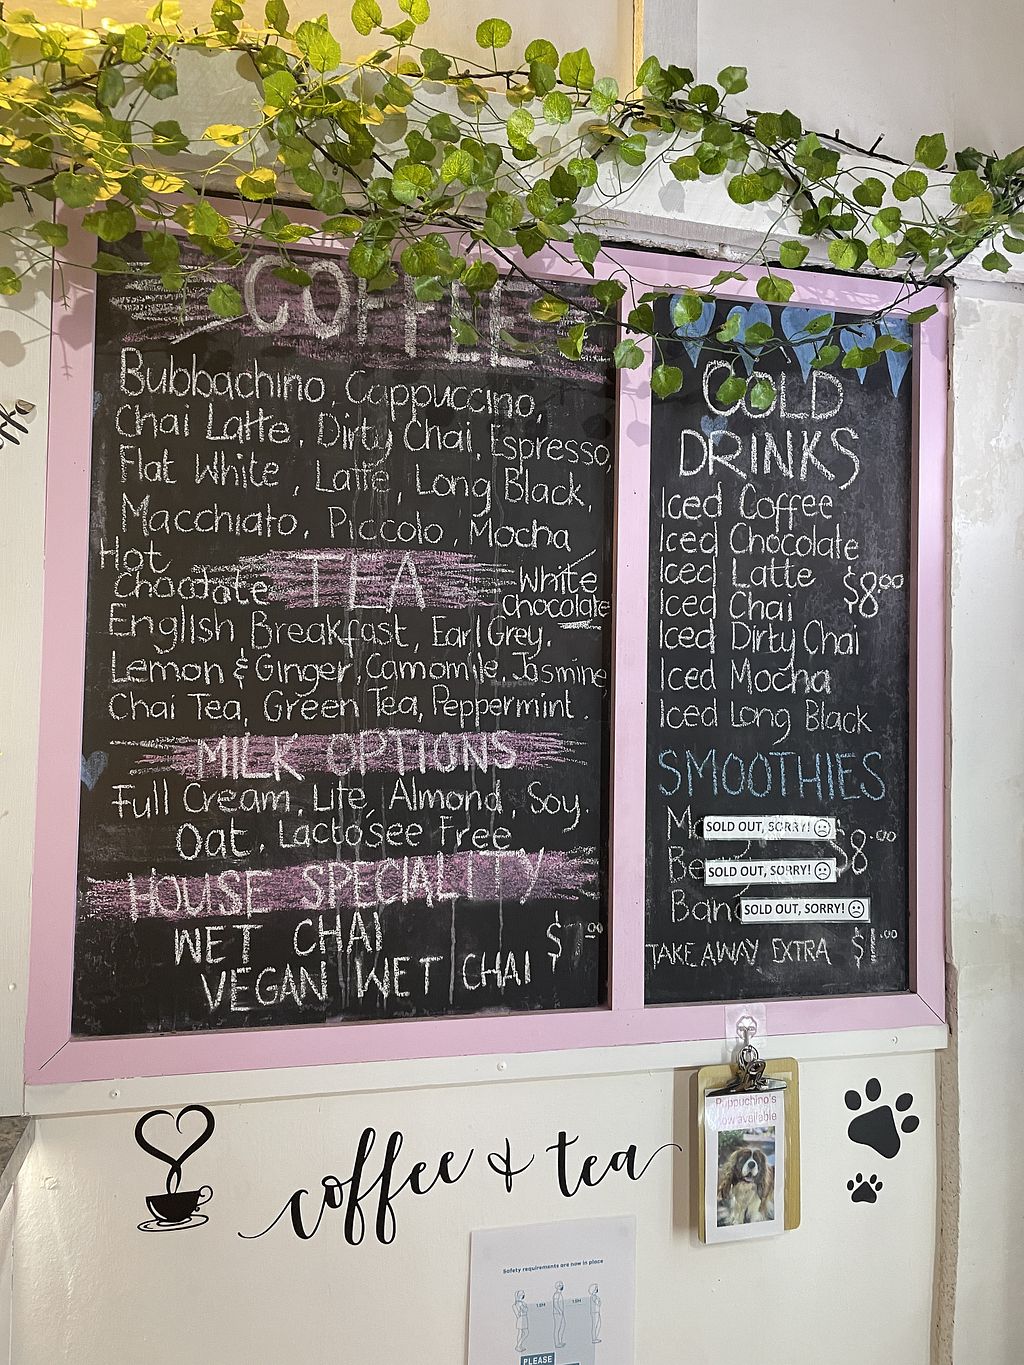 COFFEE
Bubbachino, Cappuccino,
Chai Latte, Dirty Chai, Espresso,
Flat White, Latte, Long Black,
Macchiato, Piccolo, Mocha
Hot
Choctate
TEA
White
Chocolate
English Breakfast, Earl Grey.
Lemon & Ginger, Camomile, Jasmine,
Chai Tea, Green Tea, Peppermint.
MILK OPTIONS
Full Cream, Lite, Almond, Soy.
Oat. Lactosee Free
HOUSE SPECIALITY
WET CHAI
VEGAN WET CHAI
$7.00
COLD
DRINKS
Iced Coffee
Iced Chocolate
Iced Latte $8.00
Iced Chai
Iced Dirty Chai
Iced Mocha
Iced Long Black
SMOOTHIES
SOLD OUT, SORRY! $8.00
SOLD OUT, SORRY!
SOLD OUT, SORRY!
TAKE AWAY EXTRA $1.00
coffee & tea
Puppuchino's
now available
Safety requirements are now in place
1.5M 1.5M
PLEASE